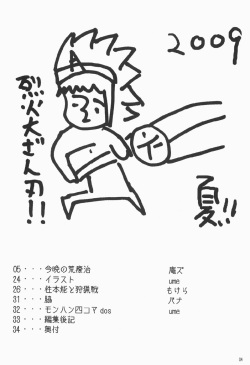 2009
夏!!
烈火大ざん刃!!
A
イ
05・・・今晩の荒療治 庵ズ
24・・・イラスト ume
26・・・性本能と狩猟戦 もけら
31・・・脇 バナ
32・・・モンハン四コマdos ume
33・・・編集後記
34・・・奥付